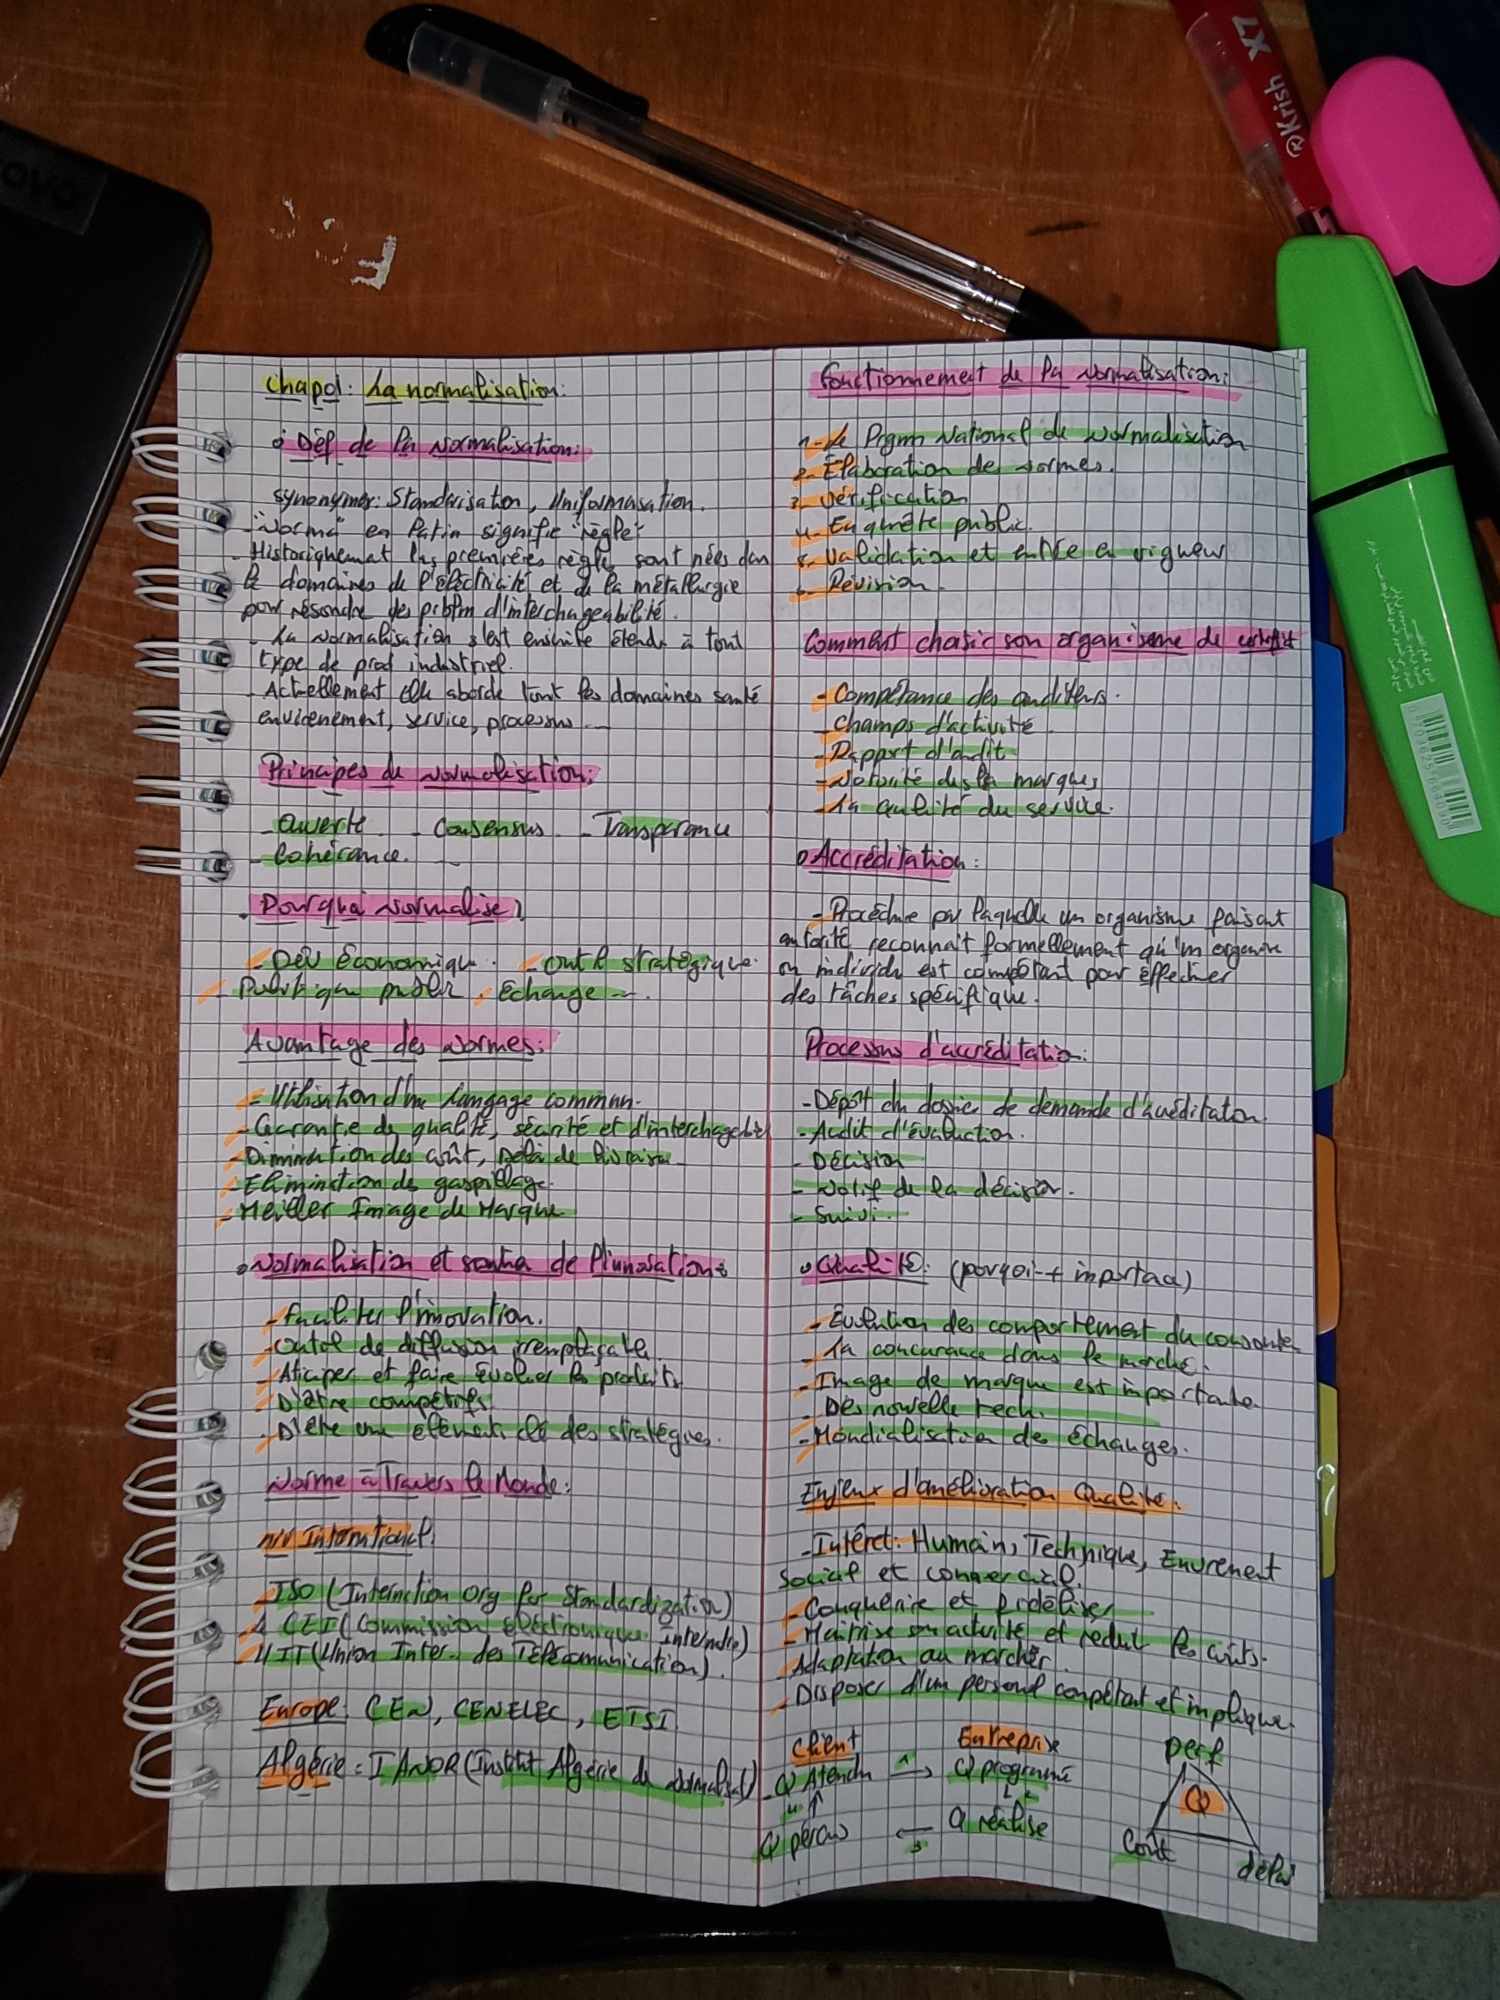 Chap01: La normalisation:
Déf de la Normalisation:
synonymes: Standarisation, Uniformasation.
- "Norma" en latin signifie "règle"
- Historiquemat les premières règles sont nées dan
le domaines de l'électricité et de la métallurgie
pour résondre des prblm d'interchageabilité.
- La Normalisation s'est ensuite étendu à tout
type de prod industriel.
- Actuellement elle aborde tout les domaines santé
envirenement, service, processus ...
Principes de Normalisation:
- Ouverte - Consensus - Transparance
- Cohérance.
Pourquoi Normalise?
- Dév économique. - Outil stratégique.
- Politique publ - Echange ...
Avantage des Normes:
- Utilisation d'un langage commun.
- Garantie de qualité, sécurité et d'interchageabi
- Diminution des coût, Délà de livraison
- Elimination de gaspillage.
- Meiller Image de Marque
Normalisation et soutin de l'innovation:
- faciliter l'innovation.
- Outil de diffusion irremplaçable.
- Aticiper et faire évoluer les produits
- D'être compétifs
- D'être une élément clé des stratégies.
Norme à Travers le Monde:
NV International:
- ISO (Internation Org for Standardization)
- CEI (Commission éléctronique Internatio)
- UIT (Union Inter. des Télécomunication).
Europe: CEN, CENELEC, ETSI
Algérie: IANOR (Institut Algérie de Normalisat)
Fonctionnement de la Normalisation:
1- le Prgrm National de Normalisation
2- Elaboration de Normes.
3- vérification
4- Enquête public.
5- Validation et entrée en vigueur
6- Révision.
Comment choisir son organisme de certificat
- Compétance des auditeurs.
- Champs d'activité.
- Rapport d'audit
- Notorité des la marques
- La qualité du service.
Accréditation:
- Procédure par laquelle un organisme faisant
autorité reconnait formellement qu'un organism
ou individu est compétant pour effectuer
des tâches spécifique.
Processus d'accréditation:
- Dépôt du dossier de demande d'accréditation.
- Audit d'évaluation.
- Décision
- Notif de la décision.
- Suivi.
Qualité: (porqoi + importaa)
- Évolution des comportement du consomten
- La concurance dans le marché.
- Image de marque est importante.
- Des nouvelle tech.
- Mondialisation des échanges.
Enjeux d'amélioration Qualité:
- Intêret: Humain, Technique, Envirement
social et commercial.
- Conquérire et fidéliser
- Maitrise son activité et réduit les coûts.
- Adaptation au marcher.
- Disposer d'un personel compétant et implique.
Client Entreprise
Q Atendu 1 → Q programmé
4 ↑ 2 ↓
Q perçu ← 3 Q réalise
perf
Q
Coût
délai
®Krish X7